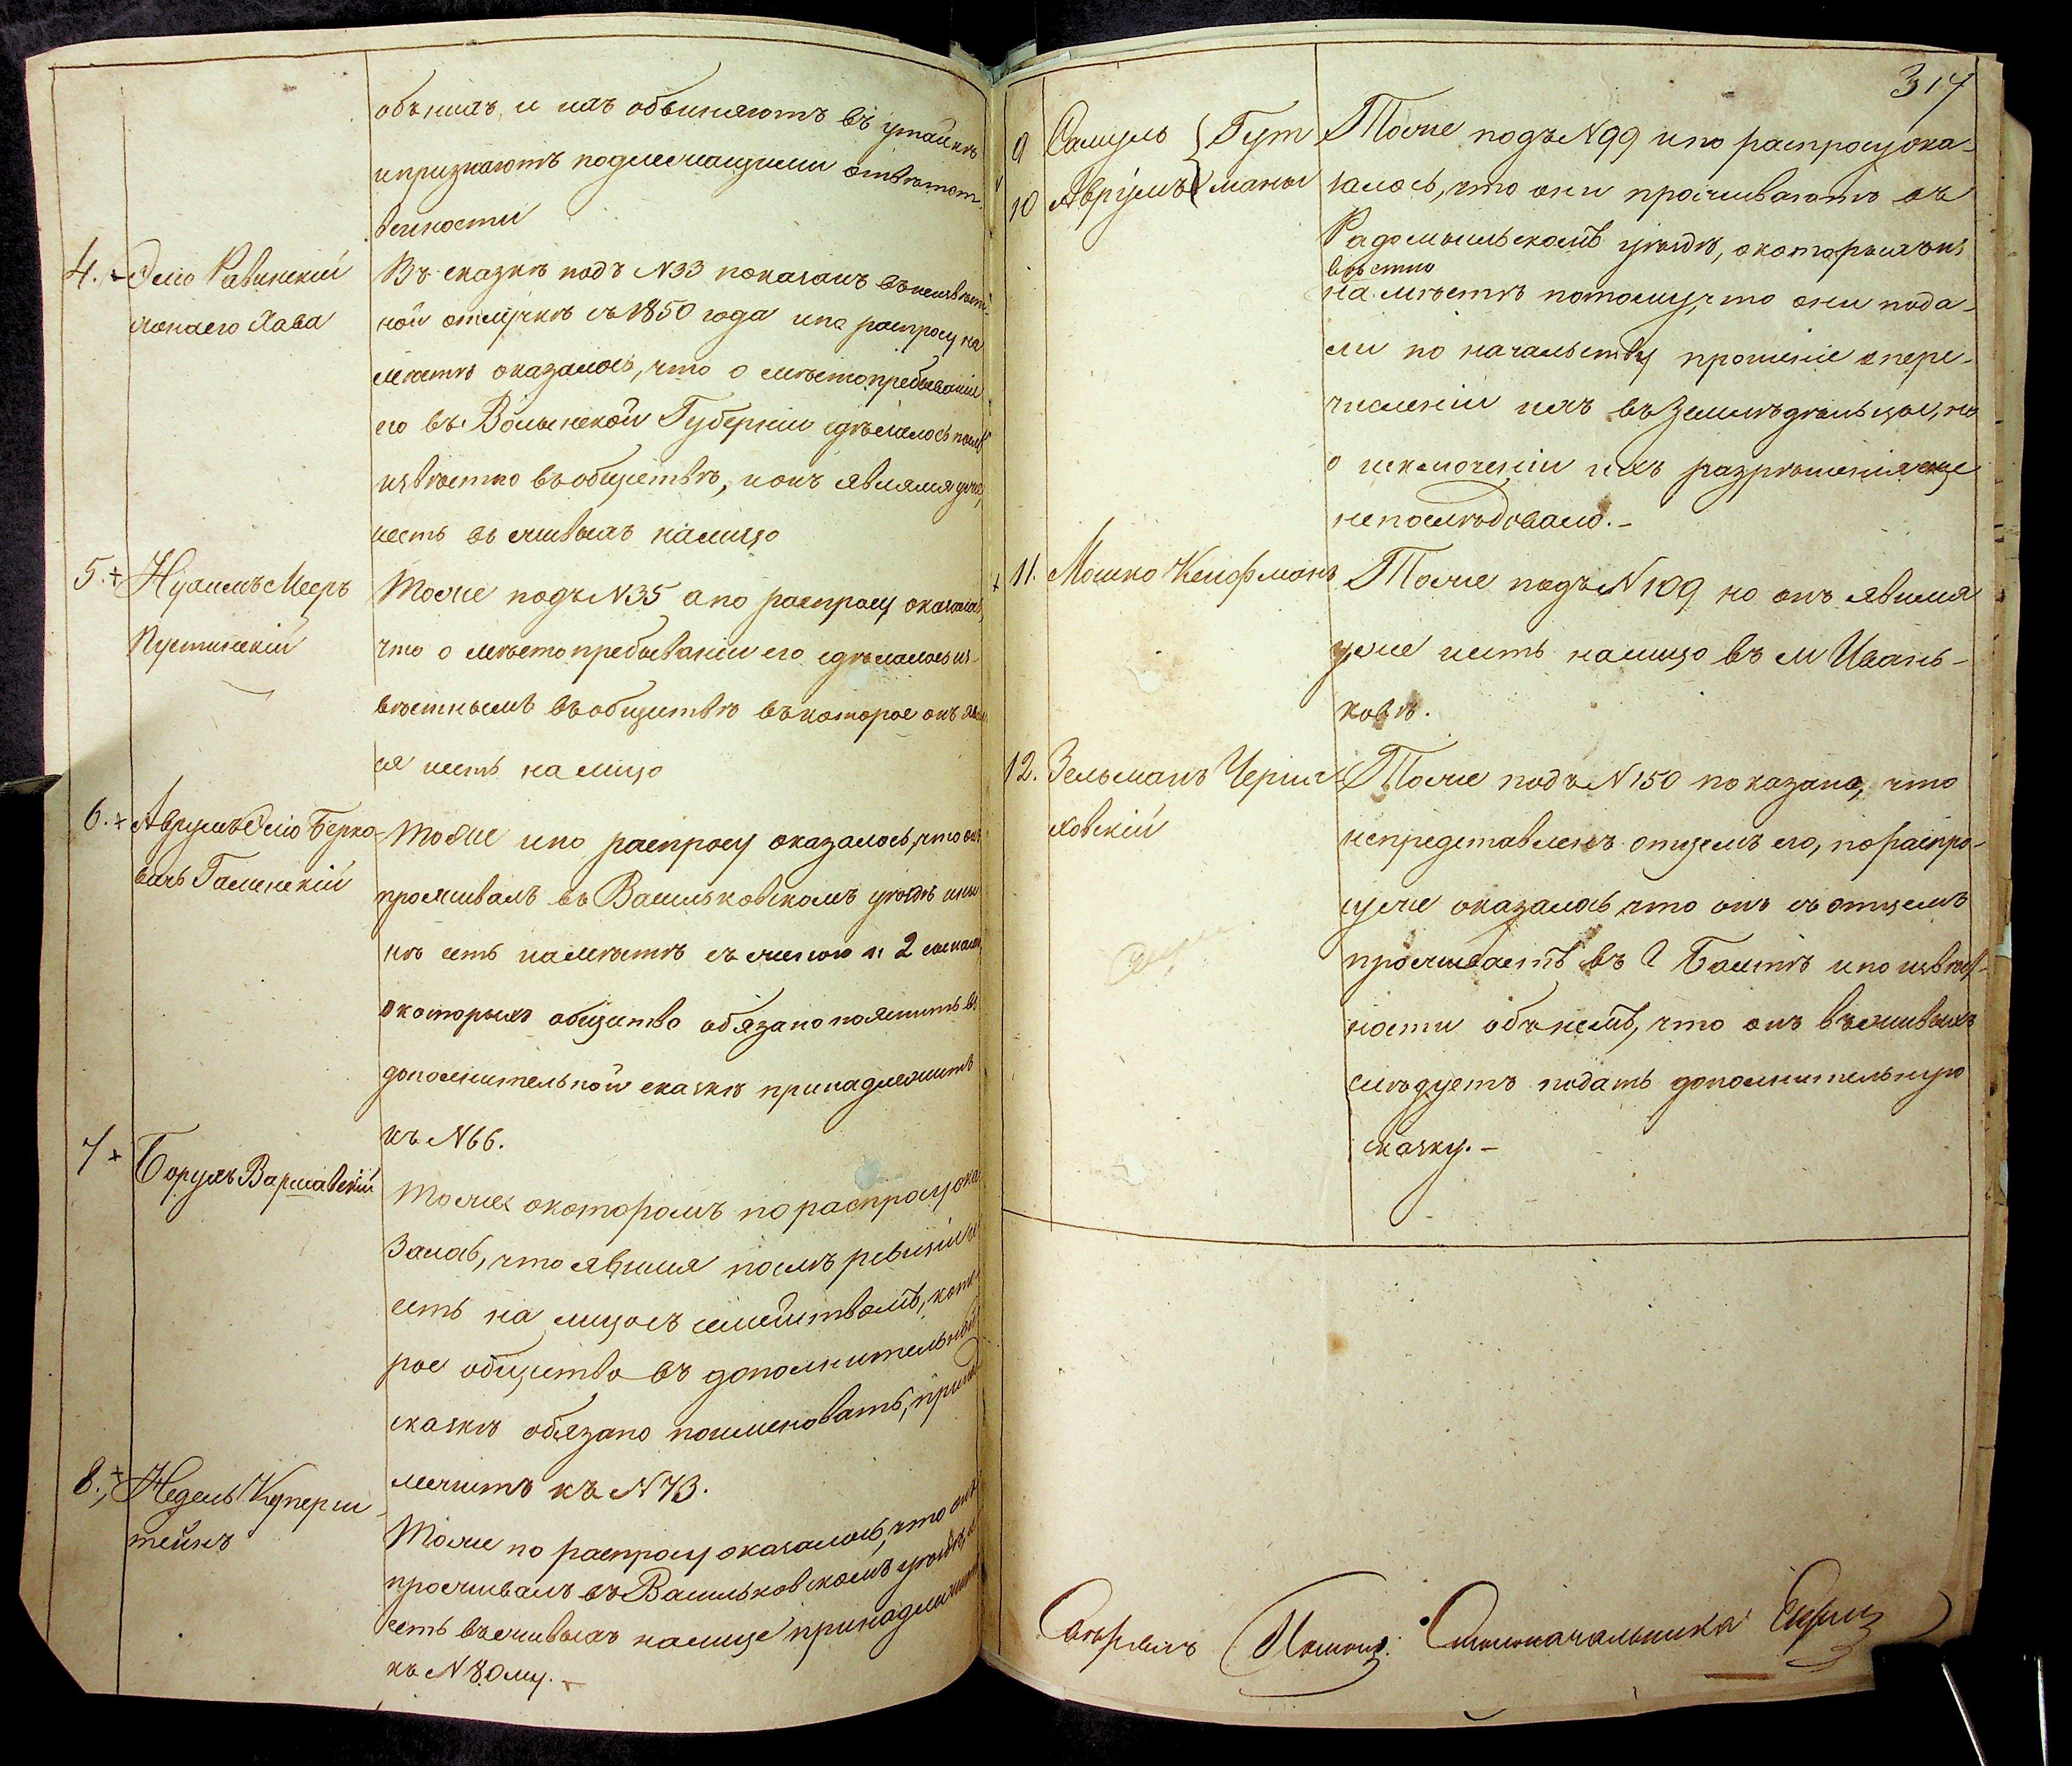 объ нихъ, и ихъ обвиняютъ въ утайкѣ
и признаютъ подлежащими отвѣтст-
венности
4. Эліо Равинскій
жона его Хава
Въ сказкѣ подъ N 33 показанъ въ неизвѣст-
ной отлучкѣ съ 1850 года и по распросу на
мѣстѣ оказалось, что о мѣстопребываніи
его въ Волынской Губерніи сдѣлалось
извѣстно въ обществѣ, и онъ явился уже,
несть въ живыхъ налицо
5. + Нухимъ Мееръ
Пустинскій
Тоже подъ N 35 а по распросу оказалось,
что о мѣстопребываніи его сдѣлалось из-
вѣстнымъ въ обществѣ въ которое онъ явил
ся есть на лицо
6. + Аврумъ Эліо Берко-
вичъ Галинскій
Тоже и по распросу оказалось, что онъ
проживалъ въ Васильковскомъ уѣздѣ и ны
нѣ есть на мѣстѣ съ женою и 2
о которыхъ общество обязано въ
дополнительной сказкѣ принадлежитъ
къ N 66.
7 + Борухъ Варшавскій
Тоже о которомъ по распросу ока-
залось, что явился послѣ ревизіи и
есть на лицо съ семействомъ, кото-
рое общество въ дополнительной
сказкѣ обязано поименовать, принад
лежитъ къ N 73.
8. + Неделъ Куперш-
тейнъ
Тоже по распросу оказалось, что онъ
проживалъ въ Васильковскомъ уѣздѣ и
есть въ живыхъ налице принадлежитъ
къ N 80му. –
317
9 Самуль } Гут
10 Аврумъ } маны
Тоже подъ N 99 и по распросу ока-
залось, что они проживаютъ въ
Радомысльскомъ уѣздѣ, о которыхъ из
вѣстно
на мѣстѣ потому, что они пода-
ли по начальству прошеніе о пере-
численіи ихъ въ Земледѣльцы, но
о исключеніи ихъ разрѣшенія еще
непослѣдовало. –
+ 11. Мошко Келфманъ
Тоже подъ N 109 но онъ явился
уже есть налицо въ м Ивань-
ковѣ.
12. Зельманъ Черня-
ховскій
Тоже подъ N 150 показано, что
непредставленъ отцемъ его, по распро-
су же оказалось что онъ съ отцемъ
проживаетъ въ г Балтѣ и по извѣст-
ности объ немъ, что онъ въ живыхъ
слѣдуетъ подать дополнительную
сказку. –
Свѣрялъ Помощ. Столоначальника